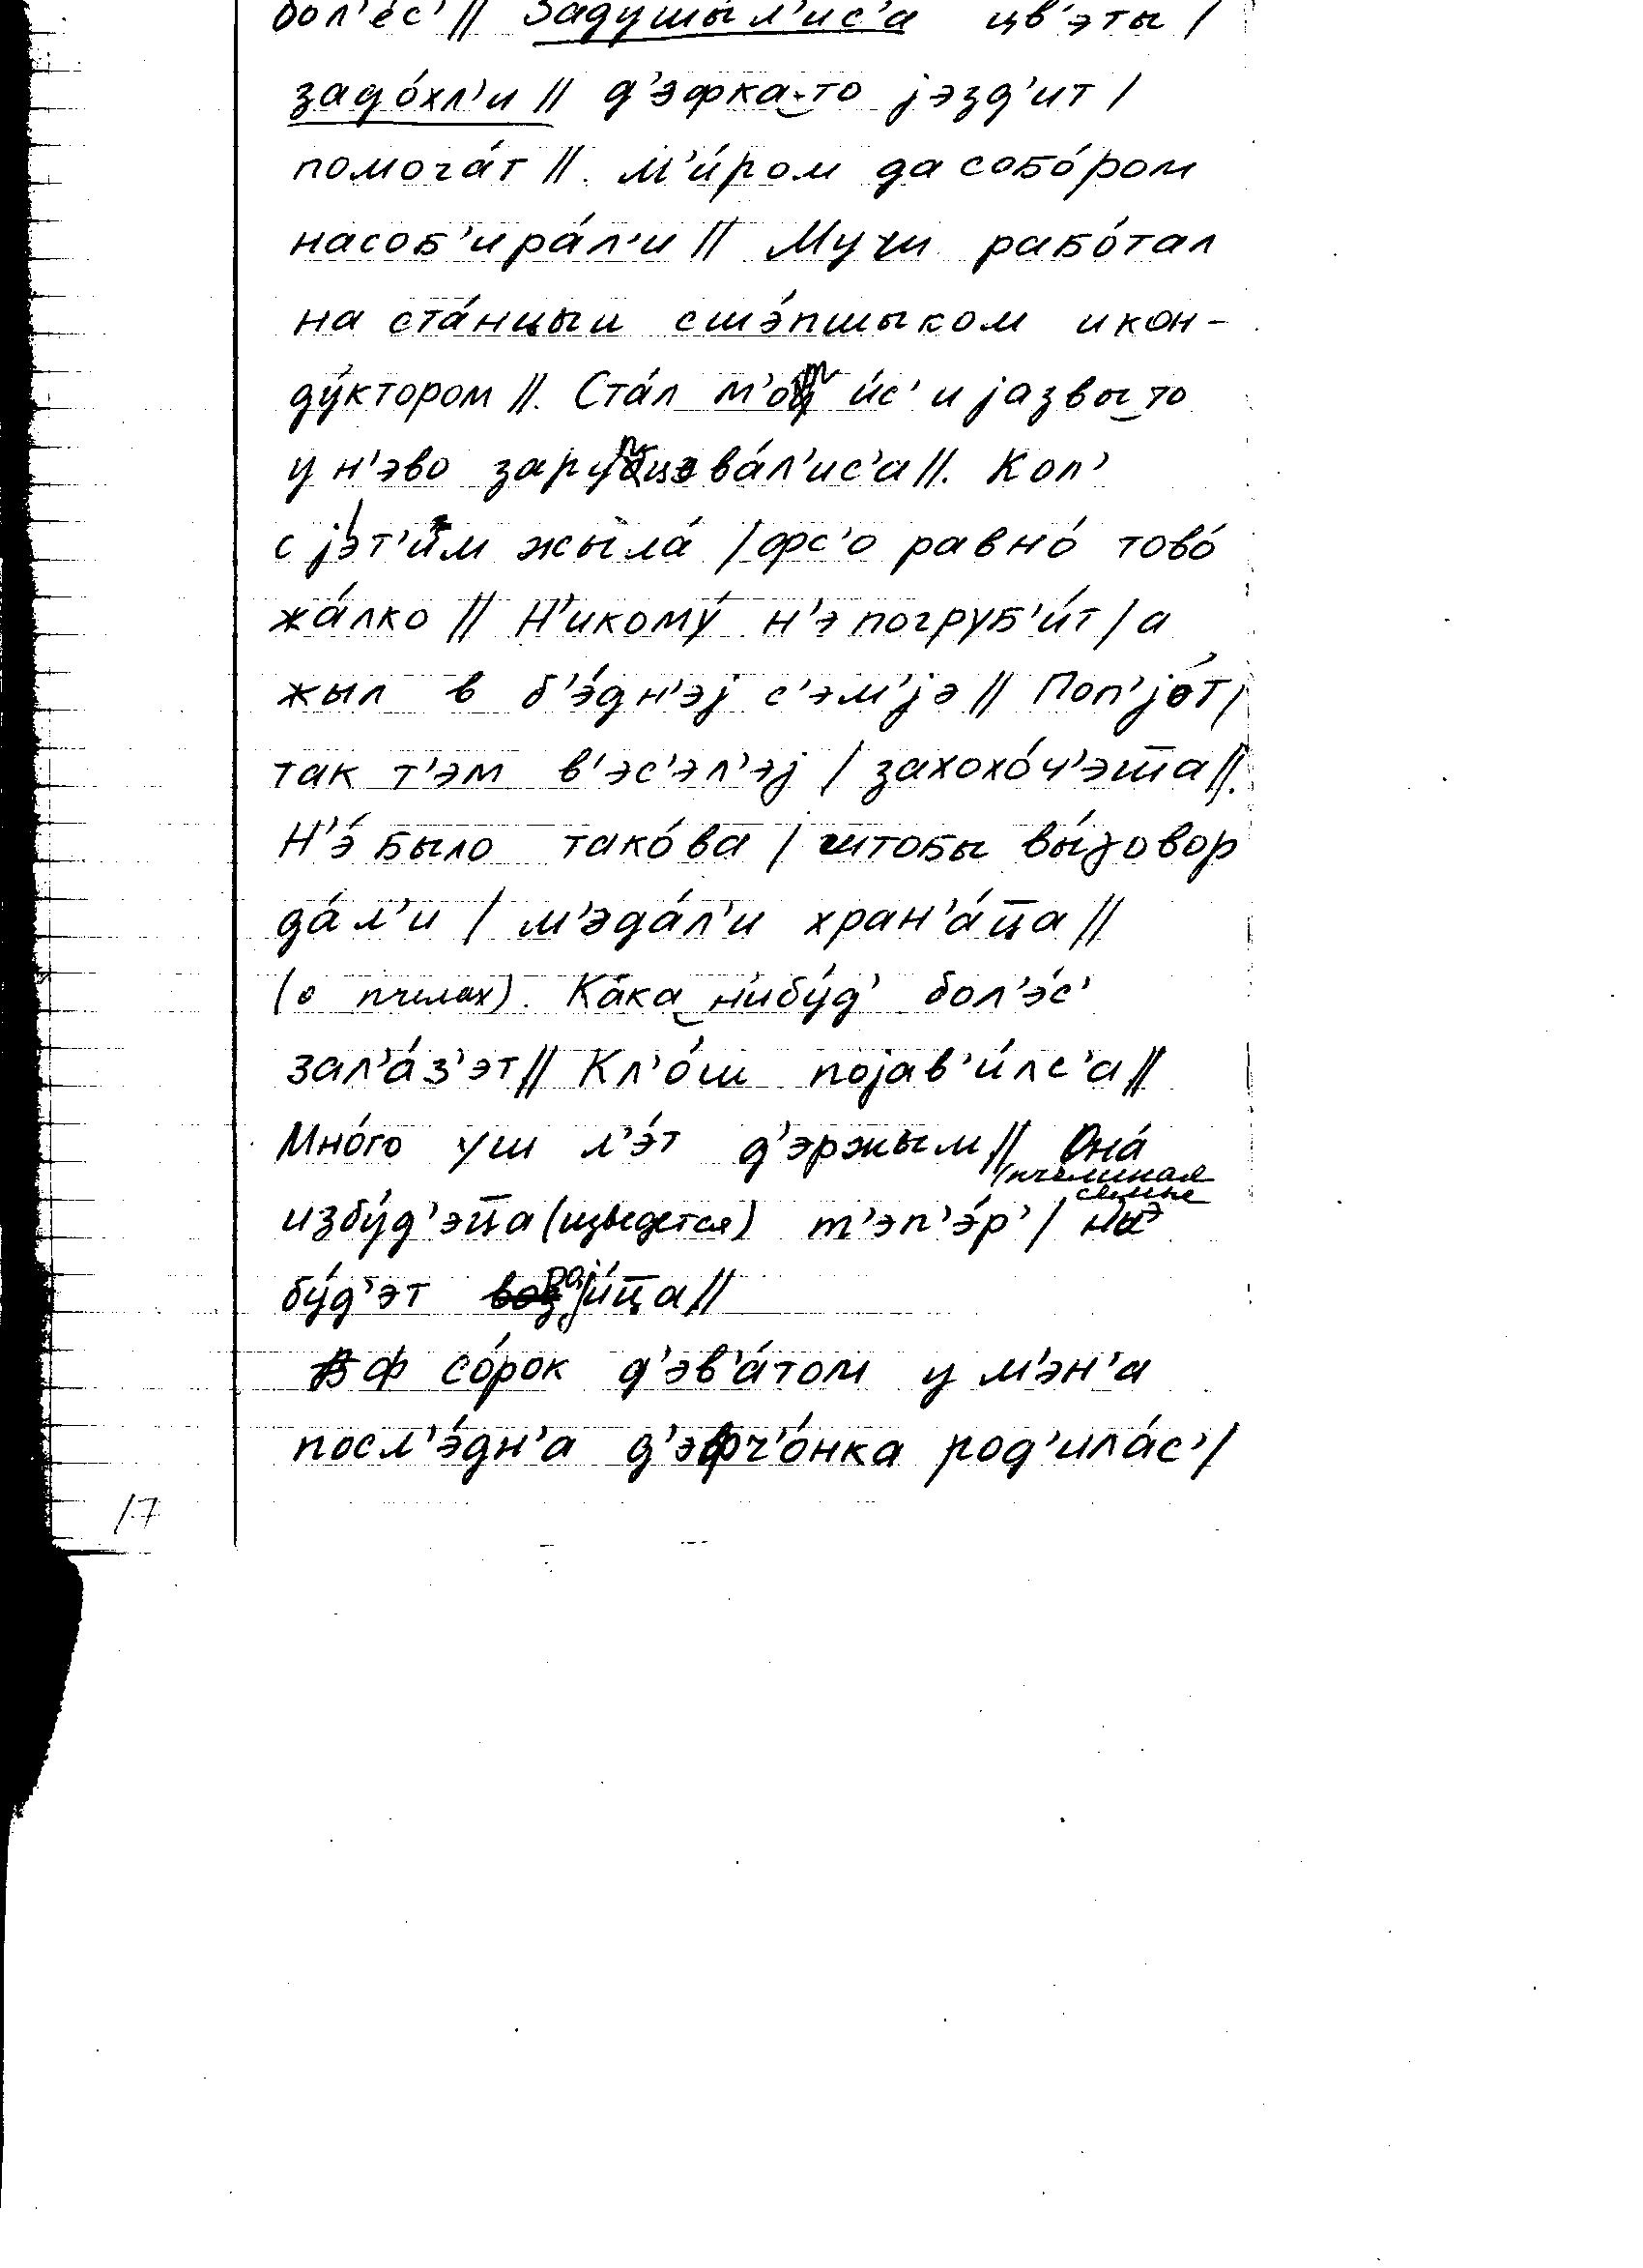 бол'е́с' // Задушы́л'ис'а цв'эты /
задо́хл'и // д'э́фка-то jэзд'ит /
помога́т // м'и́ром да собо́ром
насоб'ира́л'и // Мужы рабо́тал
на ста́нцыи сшэ́пшыком и кон-
ду́ктором // Ста́л и́с' и jазвы то
у н'эво ва́л'ис'а // Кол'
с jэ́т'им жыла́ / фс'о равно́ тово́
жа́лко // Н'икому́ н'э погруб'и́т / а
жыл в б'э́дн'эj с'эм'jэ // Поп'jо́т /
так т'эм в'эс'эл'эj / захохо́ч'эт̄а //
Н'э́ было тако́ва / штобы вы́говор
да́л'и / м'эда́л'и хран'а́ц̄а //
(о пчелах). Ка́ка н'ибу́д' бол'э́с'
зал'а́з'эт // Кл'о́ш поjав'и́лс'а //
Мно́го уш л'э́т д'эржым // Она́
(пчелиная семья)
избу́д'эц̄а (изведется) т'эп'э́р' / н'э
бу́д'эт раjи́ц̄а //
ф со́рок д'эв'а́том у м'эн'а
посл'э́дн'а д'эфч'о́нка род'ила́с' /
17